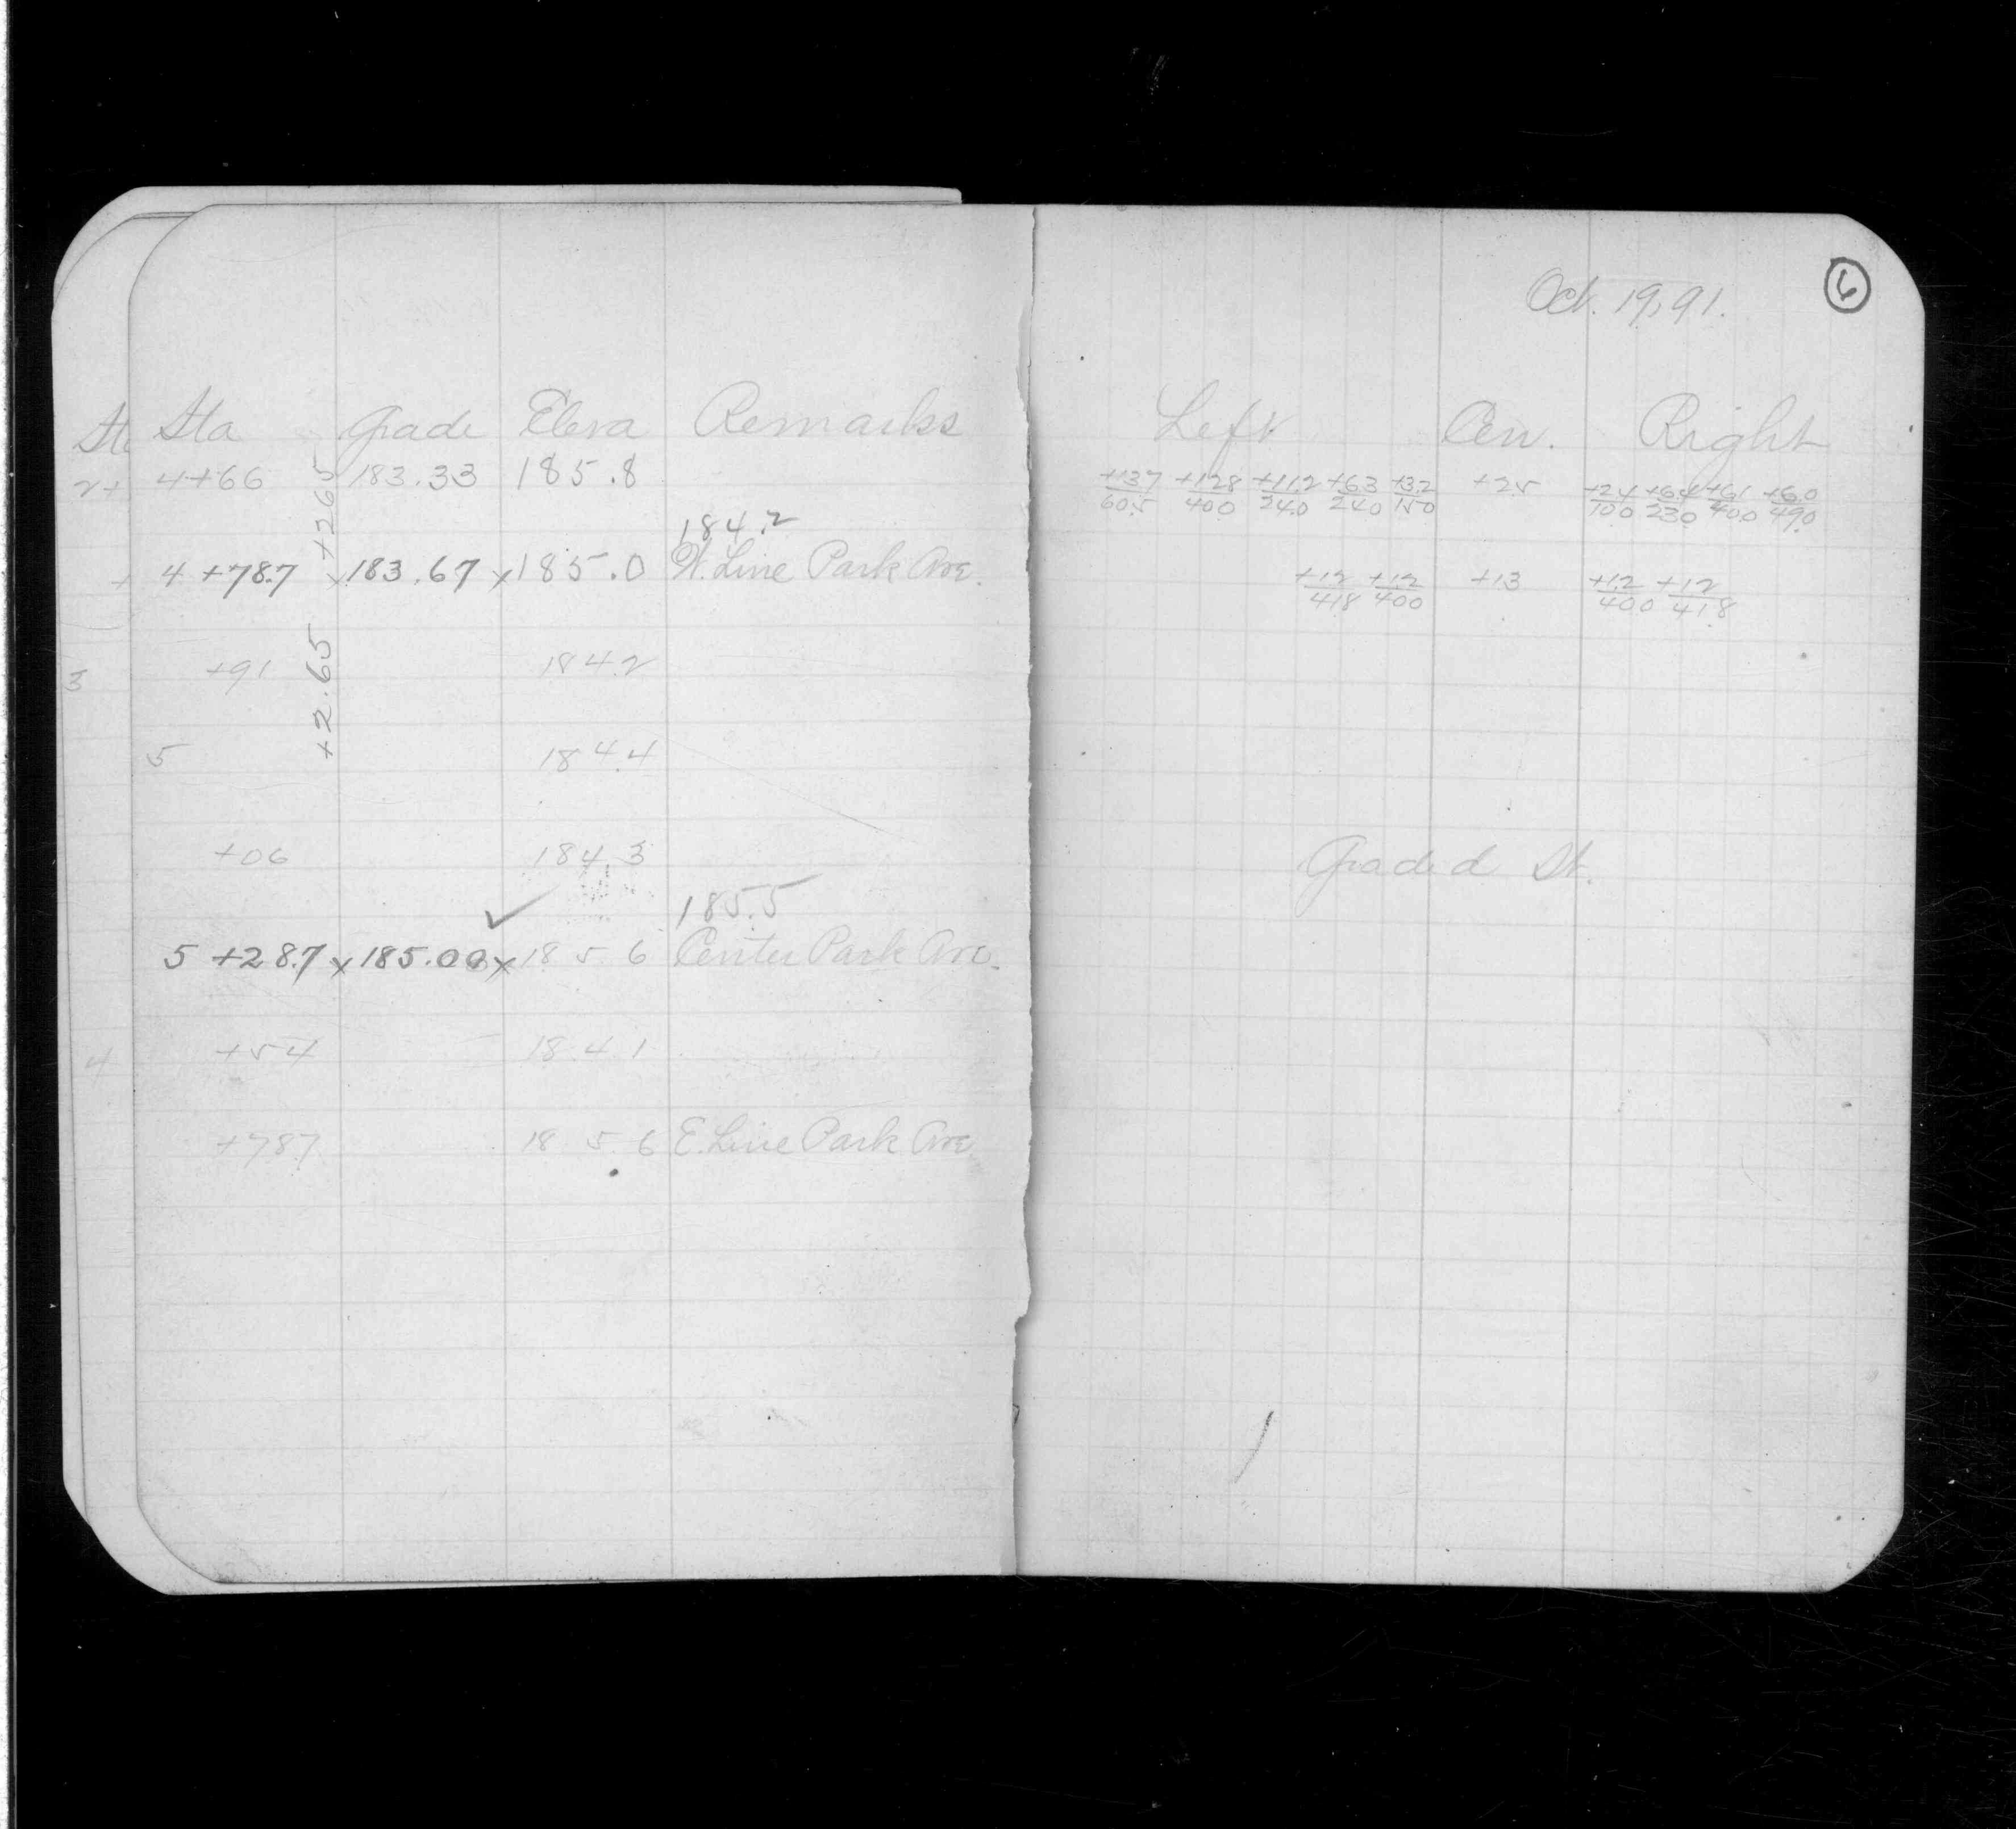 6
Oct. 19, 91.
Sta Grade Eleva Remarks Left Cen. Right
4+66 183.33 185.8 +13.7/60.5 +12.8/40.0 +11.2/24.0 +6.3/24.0 +3.2/15.0 +2.5 +2.4/10.0 +6.4/23.0 +6.1/40.0 +6.0/49.0
+2.65
184.2
4 +78.7 x 183.67 x 185.0 W. Line Park Ave. +1.2/41.8 +1.2/40.0 +1.3 +1.2/40.0 +1.2/41.8
+2.65
+91 184.2
5 184.4
+06 184.3 Graded St.
✓ 185.5
5 +28.7 x 185.00 x 185.6 Center Park Ave.
+54 184.1
+78.7 185.6 E. Line Park Ave.
St
2+
+
3
4